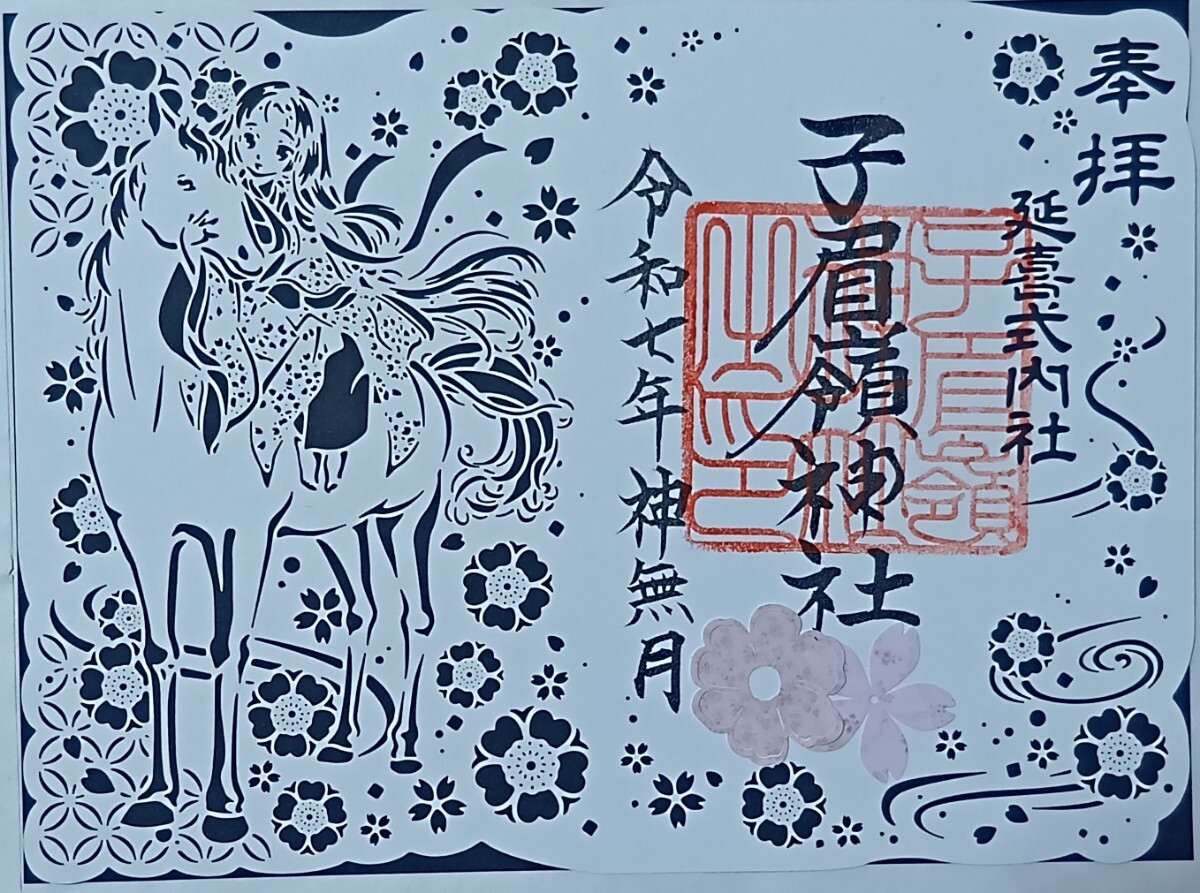 奉拝
延喜式内社
子眉嶺神社
子眉嶺神社之印
令和七年神無月